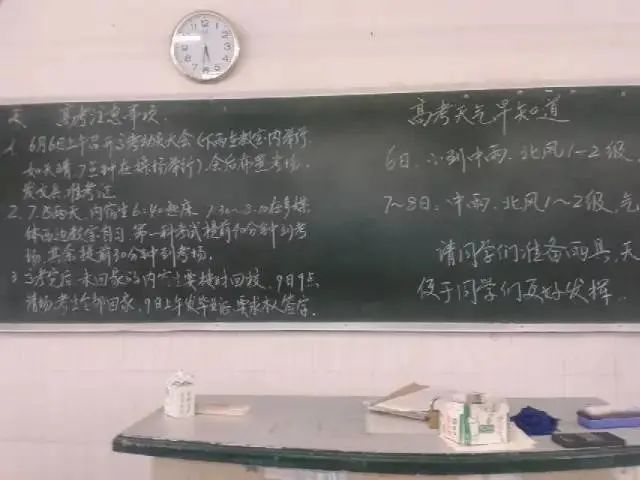 高考注意事项
1. 6月6日上午召开高考动员大会(下雨在教室内举行
如天晴,7点钟在操场举行),会后布置考场,
发放 准考证
2. 7.8两天,内宿生6:40起床,7:30~8:10在多媒
体 教室自习,第一科考试提前40分钟到考
场,其余提前30分钟到考场.
3. 高考完后,未回家的内宿生要按时回校,9日9点
清场,考生全部回家,9日上午发毕业证,要求本人签字.
高考天气早知道
6日:小到中雨.北风1~2级
7~8日:中雨.北风1~2级,气
请同学们准备雨具,天
便于同学们更好发挥..